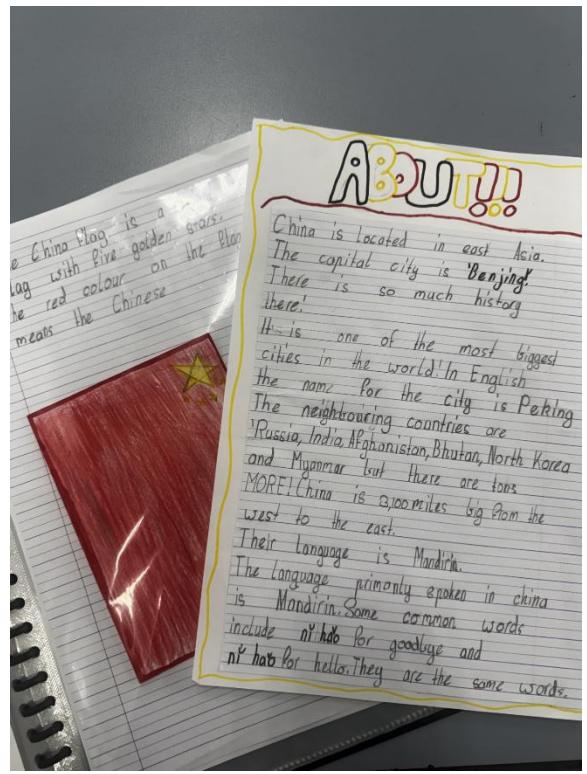 e China flag is a
lag with five golden stars.
he red colour on the flag
means the Chinese
ABOUT!!!
China is located in east Asia.
The capital city is 'Benjing'.
There is so much history
there!
It is one of the most biggest
cities in the world! In English
the name for the city is Peking
The neighbouring countries are
'Russia, India, Afghonistan, Bhutan, North Korea
and Myanmar but there are tons
MORE! China is 3,100 miles big from the
west to the east.
Their language is Mandirin.
The language primonly spoken in china
is Mandirin. Some common words
include nǐ hǎo for goodbye and
nǐ hǎo for hello. They are the same words.